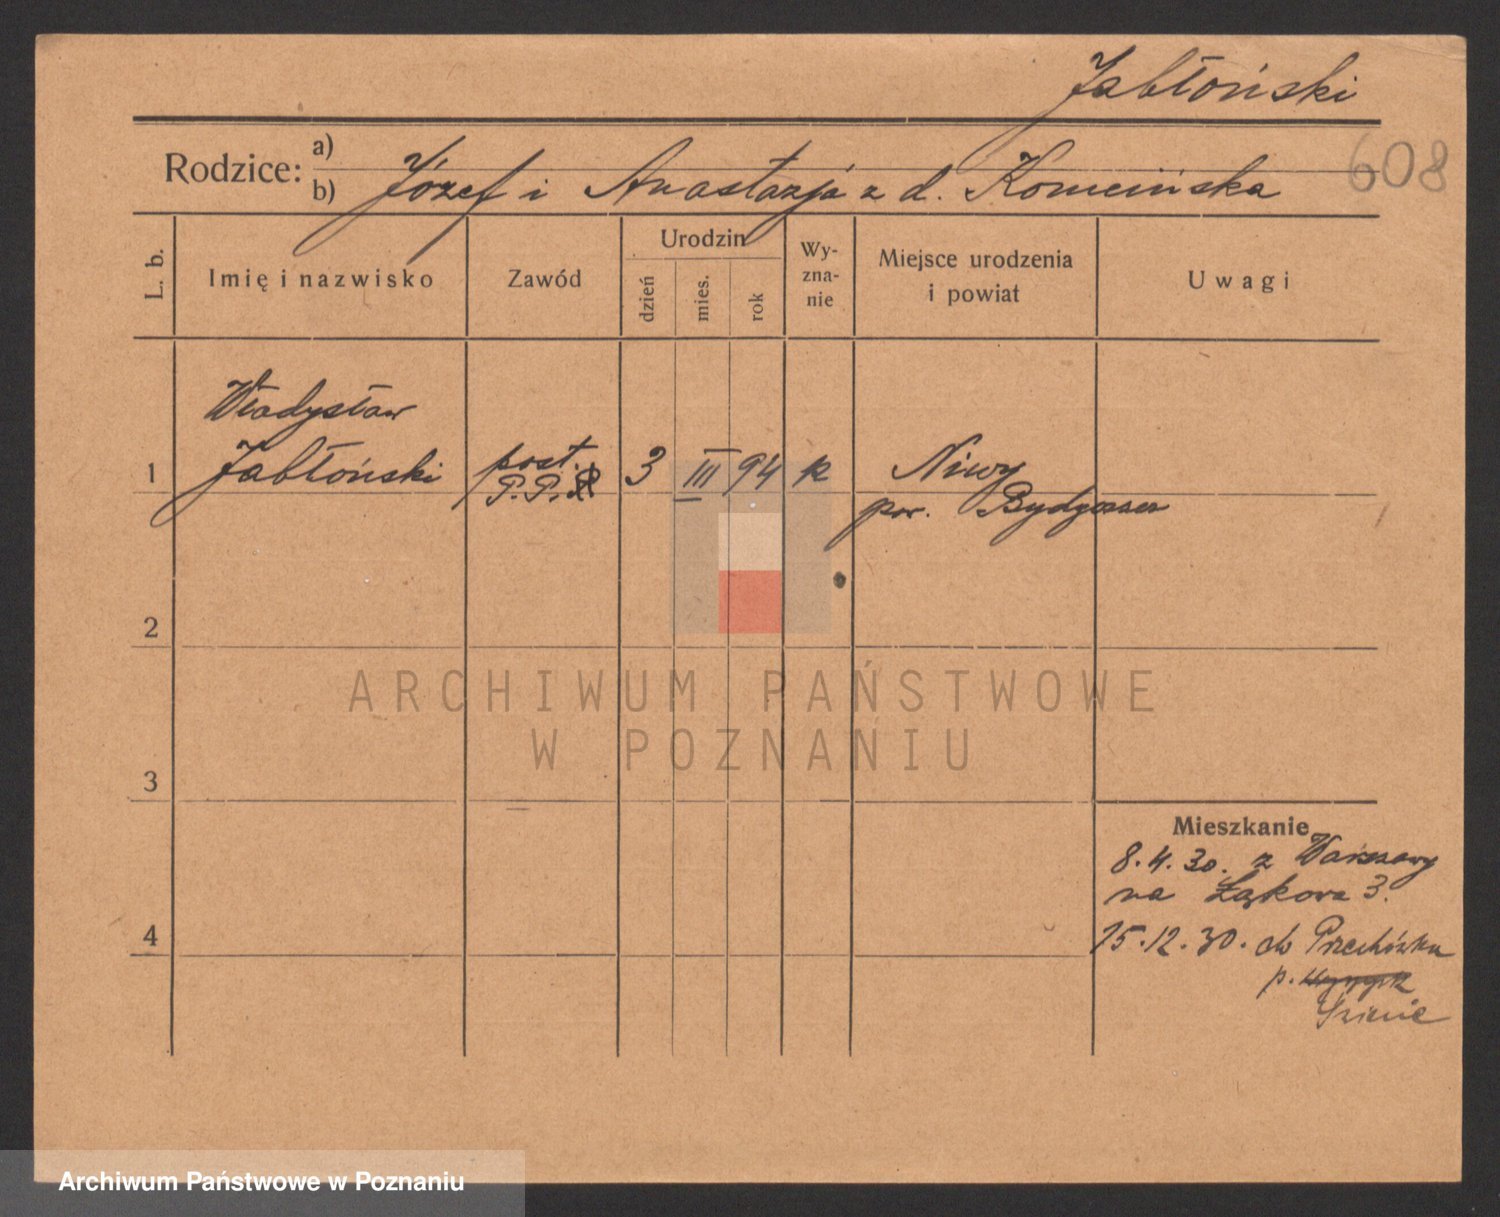 Jabłoński
608
Rodzice: a)
b) Józef i Anastazja z d. Komeińska
L. b.
Imię i nazwisko
Zawód
Urodzin
dzień
mies.
rok
Wy-
zna-
nie
Miejsce urodzenia
i powiat
Uwagi
Władysław
1 Jabłoński post. 3 III 94 k Niwy
P.P.
pow. Bydgoszcz
2
3
4
Mieszkanie
8.4.30. z Warszawy
na Łąkowa 3.
15.12.30. do Przechówka
p.
ARCHIWUM PAŃSTWOWE
W POZNANIU
Archiwum Państwowe w Poznaniu